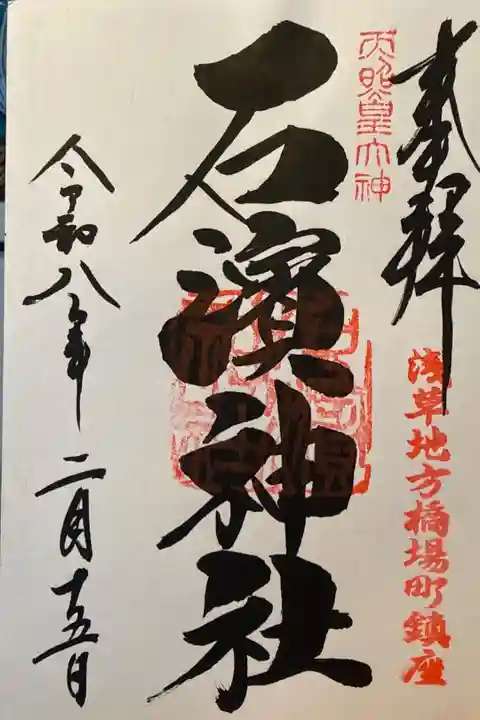 奉拝
浅草地方橋場町鎮座
天照皇大神
石濱神社
令和八年二月十五日